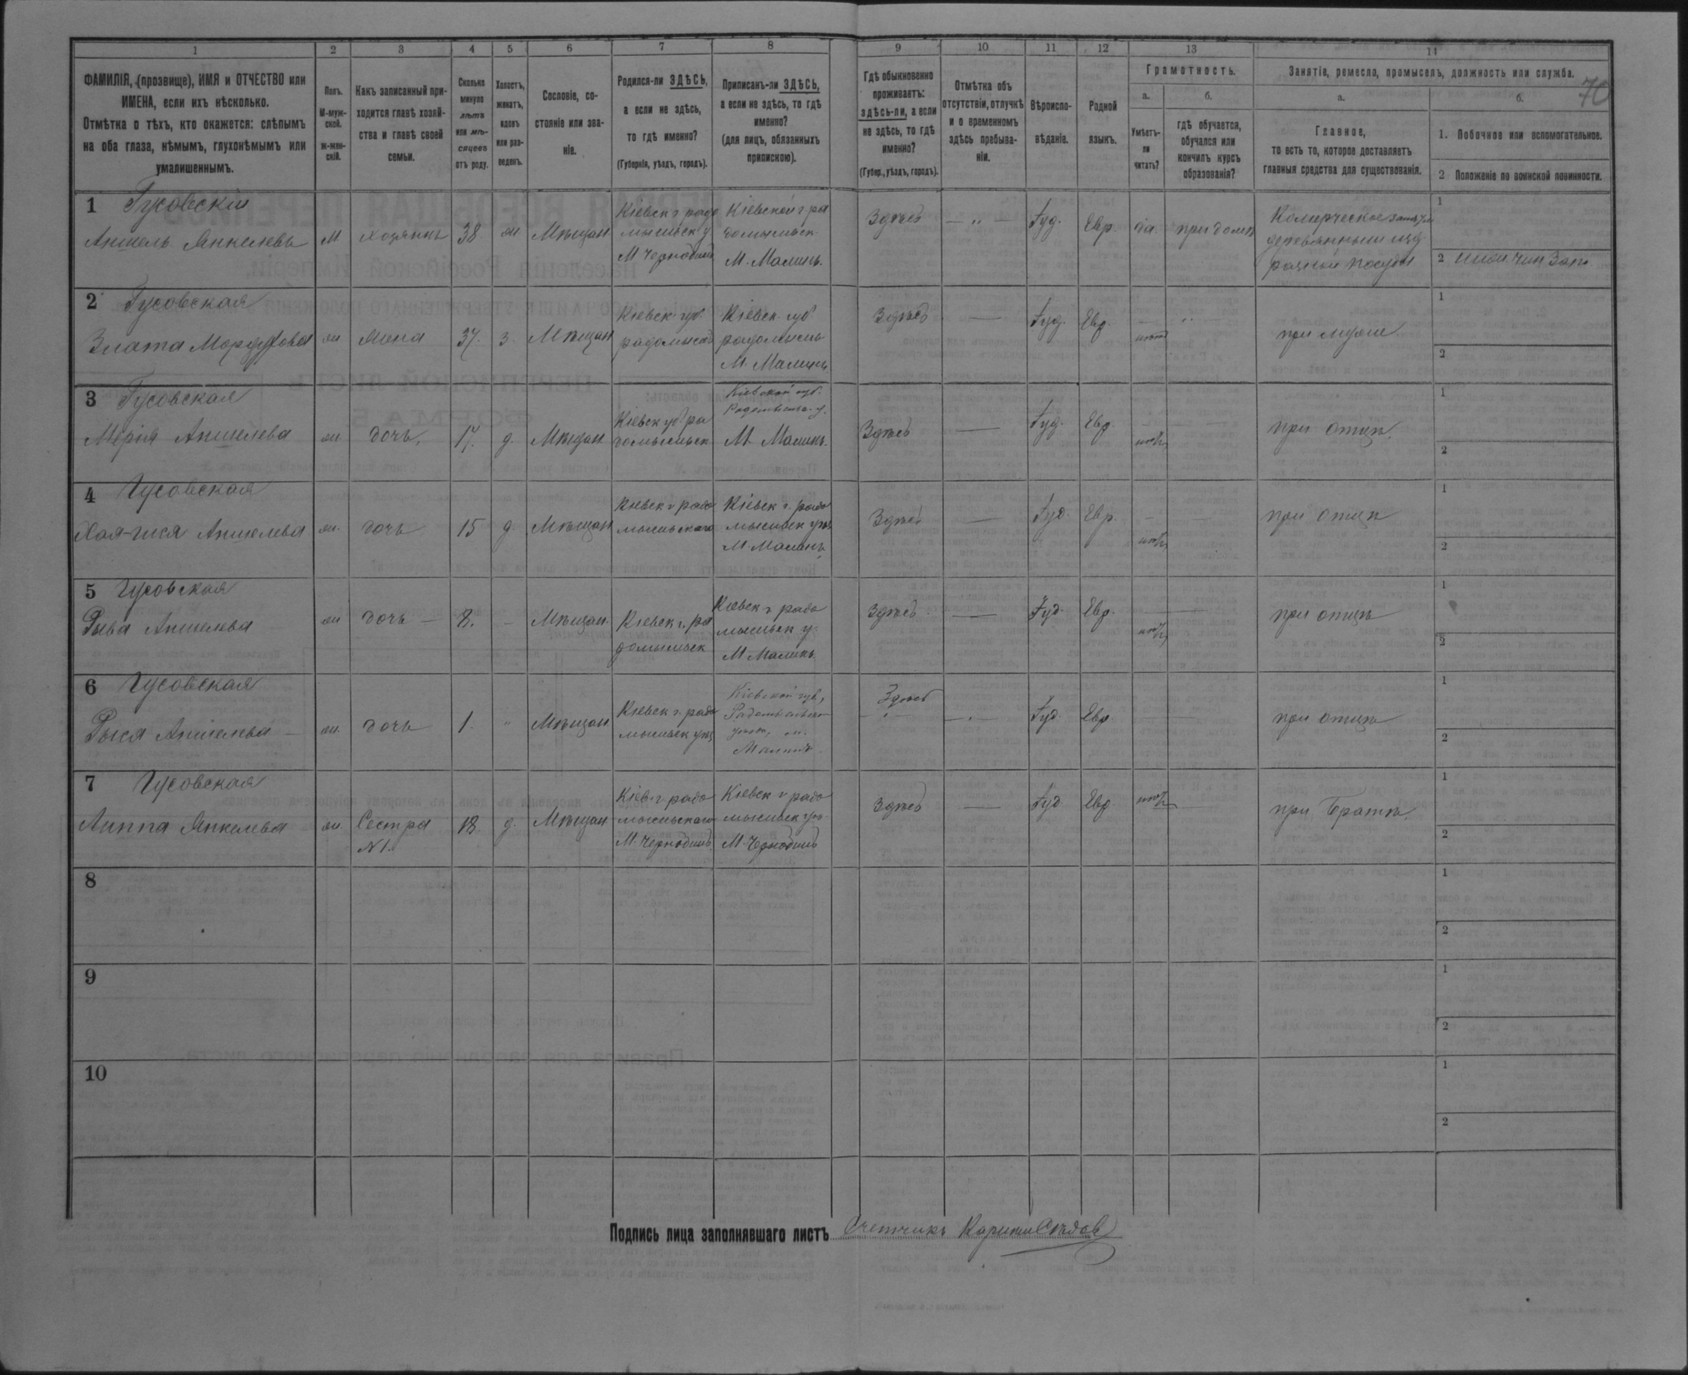 1 2 3 4 5 6 7 8 9 10 11 12 13 14
ФАМИЛІЯ, (прозвище), ИМЯ и ОТЧЕСТВО или
ИМЕНА, если ихъ нѣсколько.
Отмѣтка о тѣхъ, кто окажется: слѣпымъ
на оба глаза, нѣмымъ, глухонѣмымъ или
умалишеннымъ.
Полъ.
М-муж-
ской.
ж-жен-
скій.
Какъ записанный при-
ходится главѣ хозяй-
ства и главѣ своей
семьи.
Сколько
минуло
лѣтъ
или мѣ-
сяцевъ
отъ роду.
Холостъ,
женатъ,
вдовъ
или раз-
веденъ.
Сословіе, со-
стояніе или зва-
ніе.
Родился-ли ЗДѢСЬ,
а если не здѣсь,
то гдѣ именно?
(Губернія, уѣздъ, городъ).
Приписанъ-ли ЗДѢСЬ,
а если не здѣсь, то гдѣ
именно?
(для лицъ, обязанныхъ
припискою).
Гдѣ обыкновенно
проживаетъ:
здѣсь-ли, а если
не здѣсь, то гдѣ
именно?
(Губер., уѣздъ, городъ).
Отмѣтка объ
отсутствіи, отлучкѣ
и о временномъ
здѣсь пребыва-
ніи.
Вѣроиспо-
вѣданіе.
Родной
языкъ.
Грамотность.
а.
Умѣетъ-
ли
читать?
б.
гдѣ обучается,
обучался или
кончилъ курсъ
образованія?
Занятіе, ремесло, промыселъ, должность или служба.
70
а.
Главное,
то есть то, которое доставляетъ
главныя средства для существованія.
б.
1. Побочное или вспомогательное.
2 Положеніе по воинской повинности.
1 Гусовскій
Аншель Янкелевъ м хозяинъ 38 ж Мѣщан
Кіевск г радо
мысльск у
М Чернобыль
Кіевской г ра
домысльск
М. Малинъ.
Здѣсь Іуд. Евр. да при домѣ
1
2
2 Гусовская
Злата ж жена 37. з. Мѣщан
Кіевск губ
радомысл
Кіевск губ
радомысль
М. Малинъ
Здѣсь Іуд. Евр нѣтъ при мужѣ
1
2
3 Гусовская
Марія Аншелева ж дочь. 17. д. Мѣщан
Кіевск губ ра
домысльск
Кіевской губ.
Радомысль. у.
М. Малинъ.
Здѣсь Іуд. Евр нѣтъ при отцѣ.
1
2
4 Гусовская
Аншелева ж. дочь 15 д. Мѣщан
Кіевск г радо
мысльскаго
Кіевск г. радо
мысльск у
М Малинъ
Здѣсь Іуд. Евр. нѣтъ при отцѣ
1
2
5 Гусовская
Рыва Аншелева ж дочь 8. Мѣщан
Кіевск г. ра
домысльск
Кіевск г. радо
мысльск у.
М Малинъ
Здѣсь Іуд. Евр. нѣтъ при отцѣ
1
2
6 Гусовская
Рыся Аншелева ж. дочь 1. Мѣщан
Кіевск г. радо
мысльск у
Кіевской губ,
Радомысльск
м.
Малинъ
Здѣсь Іуд Евр при отцѣ
1
2
7 Гусовская
Янкелева ж. Сестра 18. д. Мѣщан
N1.
Кіев г. радо
мысльскаго
М. Чернобыль
Кіевск г радо
мысльск у
М. Чернобыль
Здѣсь Іуд Евр нѣтъ при Братѣ.
1
2
8
1
2
9
1
2
10
1
2
Подпись лица заполнявшаго листъ Счетчикъ